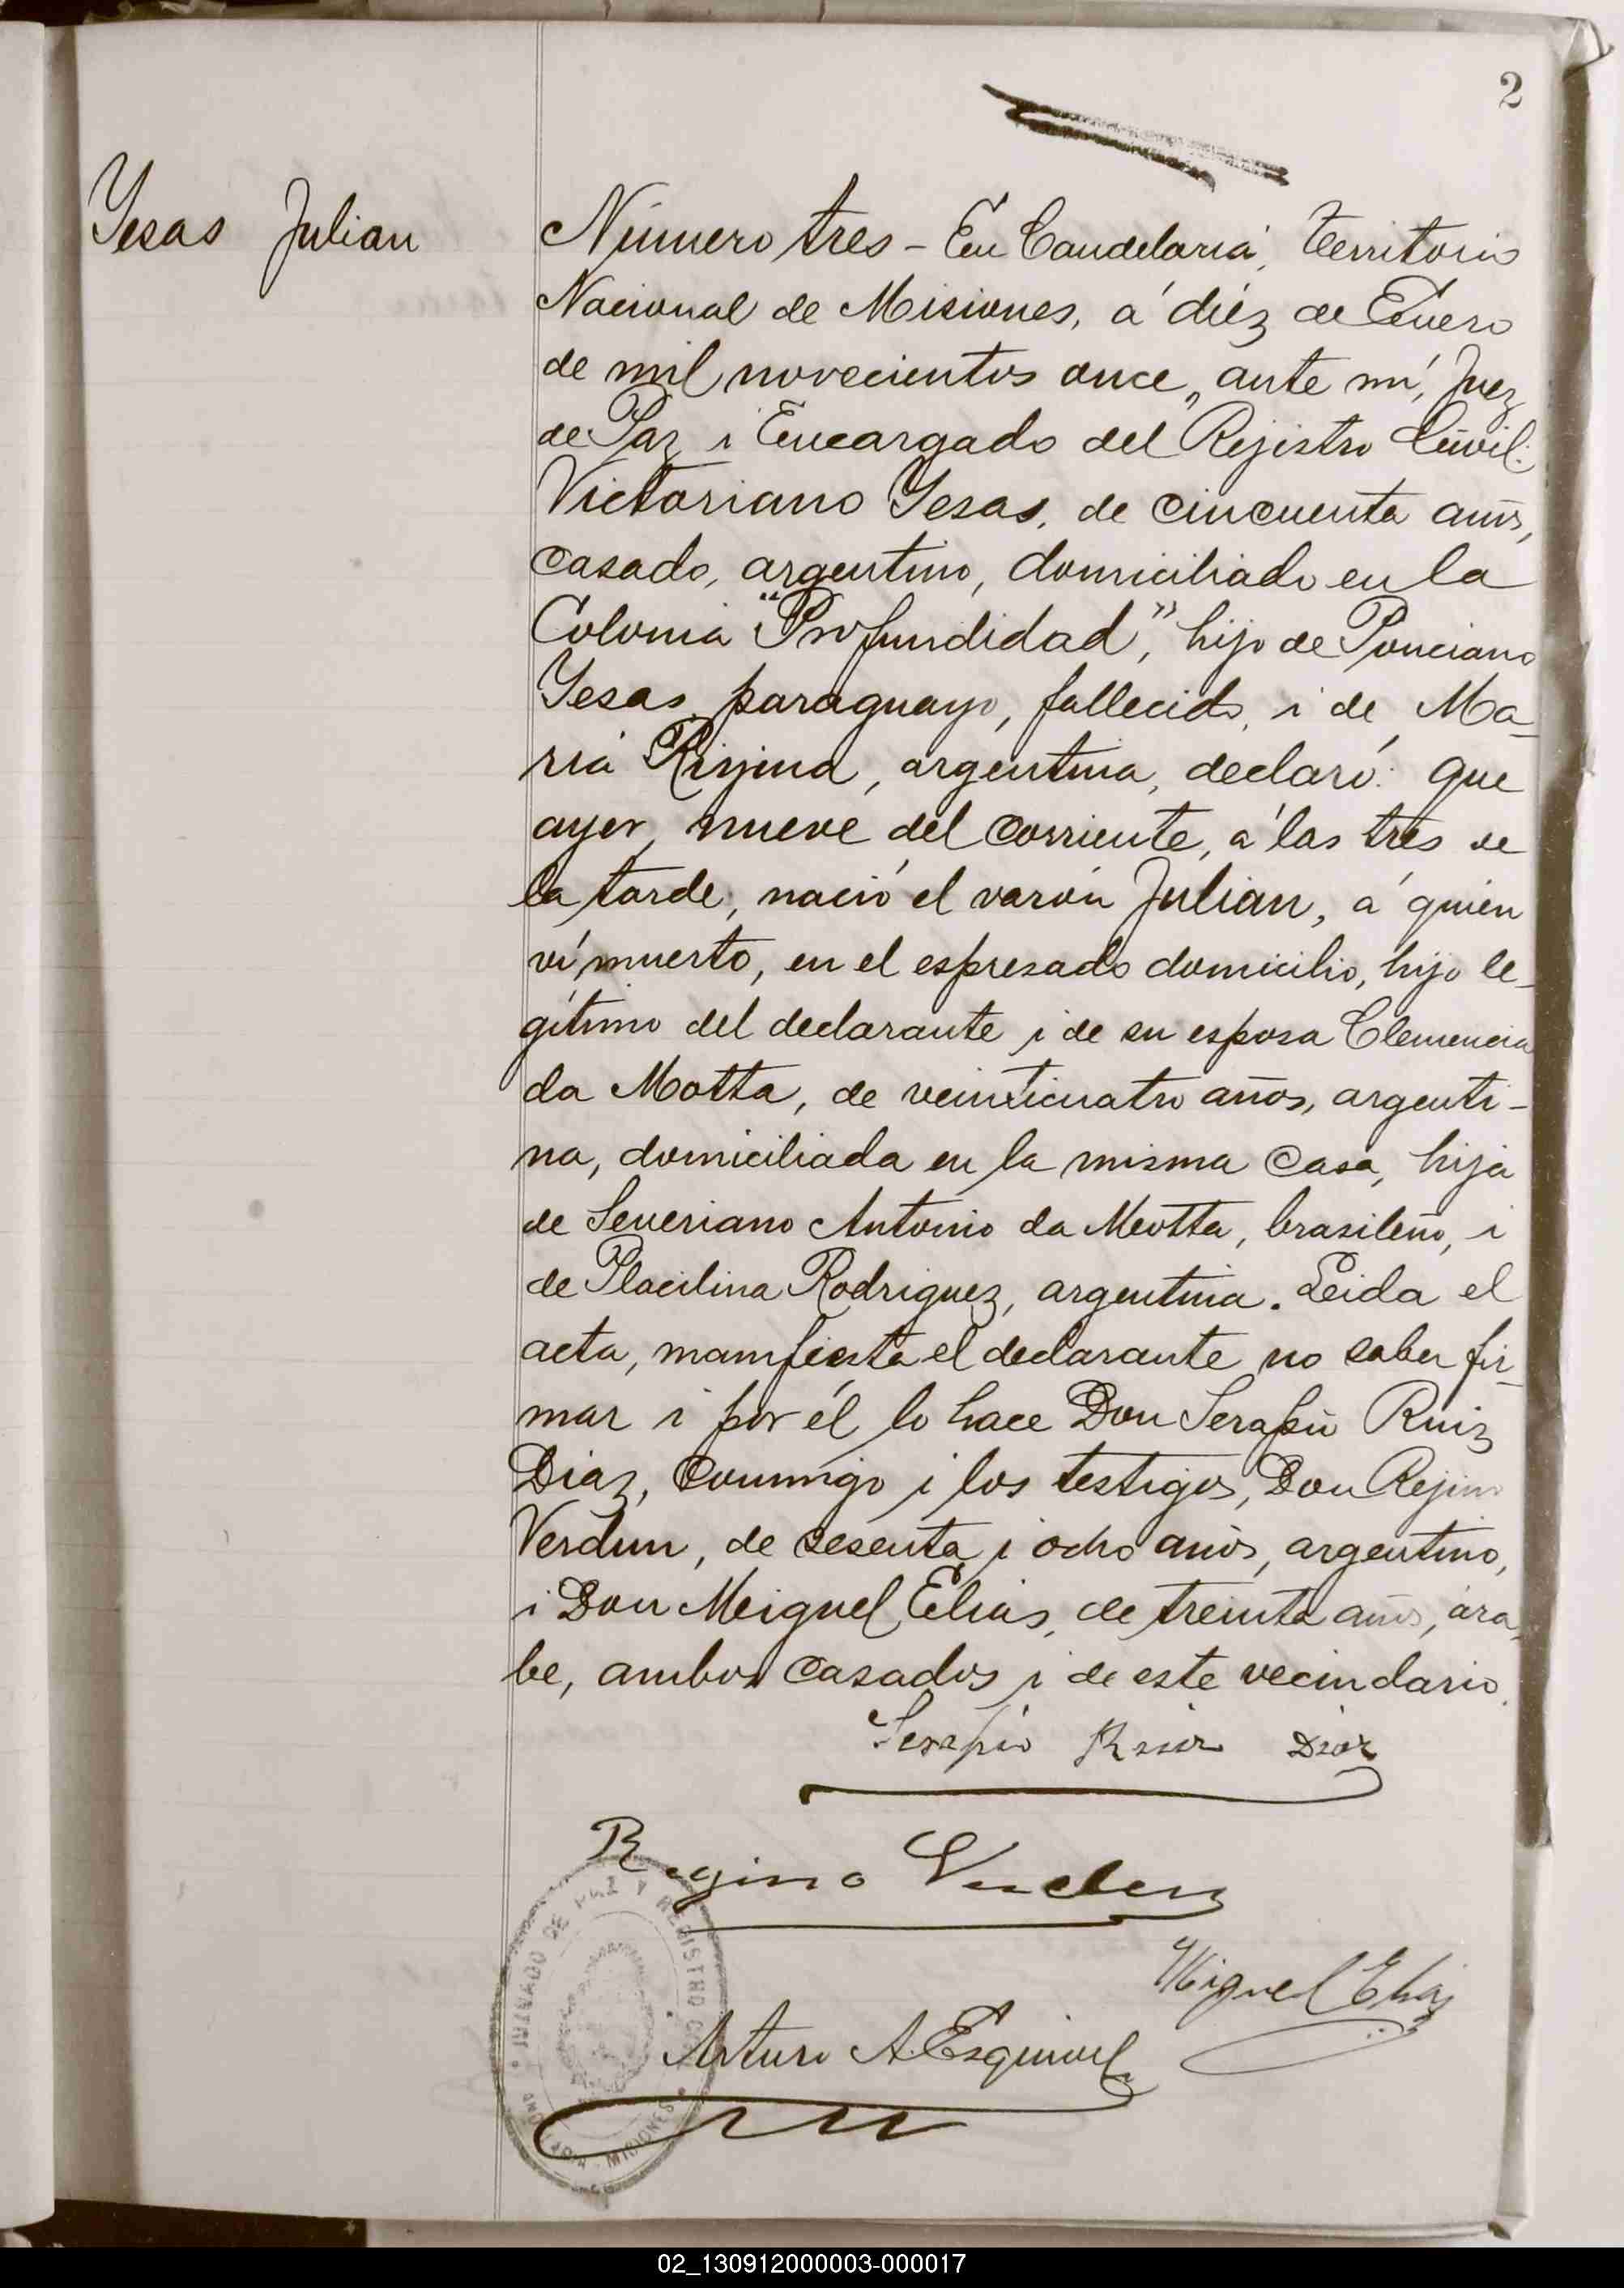 2
Yesas Julian
Número tres - En Candelaria, Territorio
Nacional de Misiones, á diéz de Enero
de mil novecientos once, ante mí, Juez
de Paz i Encargado del Rejistro Civil:
Victoriano Yesas, de cincuenta años,
casado, argentino, domiciliado en la
Colonia "Profundidad", hijo de Ponciano
Yesas, paraguayo, fallecido, i de Ma-
ria Rijina, argentina, declaró: que
ayer, nueve del corriente, á las tres de
la tarde, nació el varón Julian, á quien
ví muerto, en el espresado domicilio, hijo le-
gítimo del declarante i de su esposa Clemencia
da Motta, de veinticuatro años, argenti-
na, domiciliada en la misma casa, hija
de Severiano Antonio da Motta, brasileño, i
de Placilina Rodriguez, argentina. Leida el
acta, manifiesta el declarante no saber fir-
mar i por él lo hace Don Serafin Ruiz
Diaz, conmigo i los testigos, Don Rejino
Verdun, de sesenta i ocho años, argentino,
i Don Miguel Elias, de treinta años, ára-
be, ambos casados i de este vecindario.
Serafin Ruiz Diaz
Regino Verdun
Miguel Elias
Arturo A. Esquivel
JUZGADO DE PAZ Y REGISTRO CIVIL
CANDELARIA - MISIONES
02_130912000003-000017